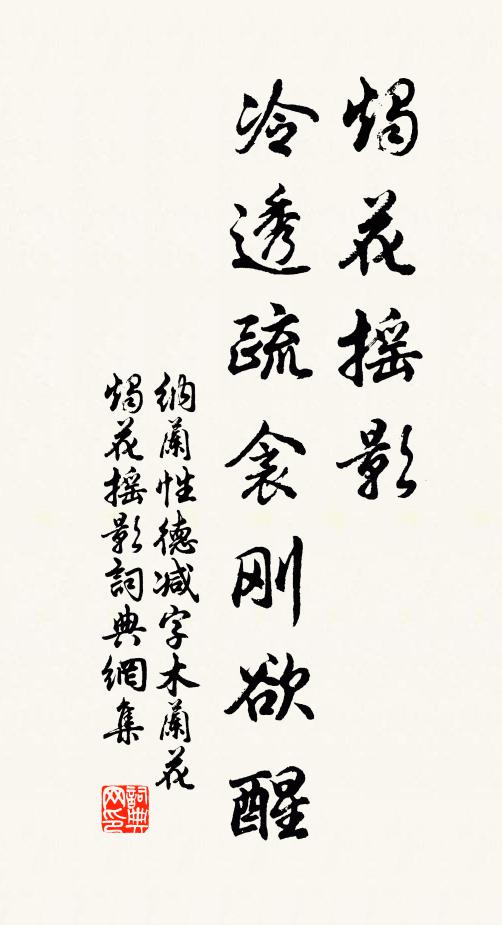 燭花摇影
冷透疏衾刚欲醒
納蘭性德减字木蘭花
燭花摇影詞典網集
詞典网印